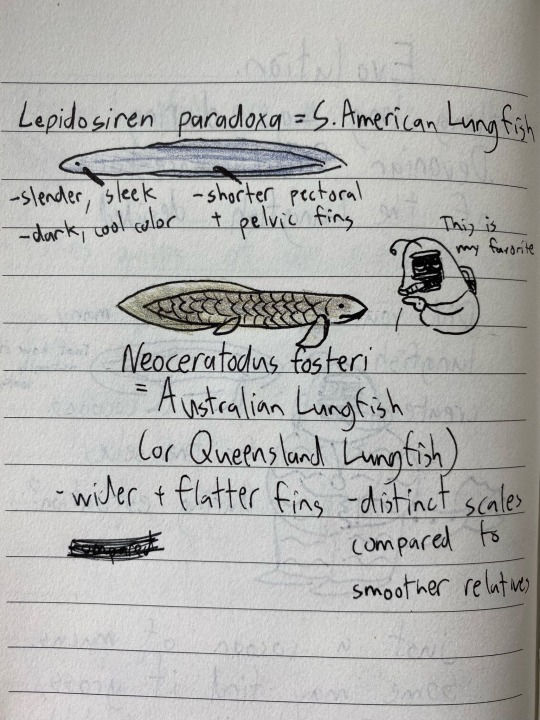 Lepidosiren paradoxa = S. American Lungfish
-slender, sleek
-dark, cool color
-shorter pectoral
+ pelvic fins
This is
my favorite
Neoceratodus fosteri
= Australian Lungfish
(or Queensland Lungfish)
- wider + flatter fins
-distinct scales
compared to
smoother relatives